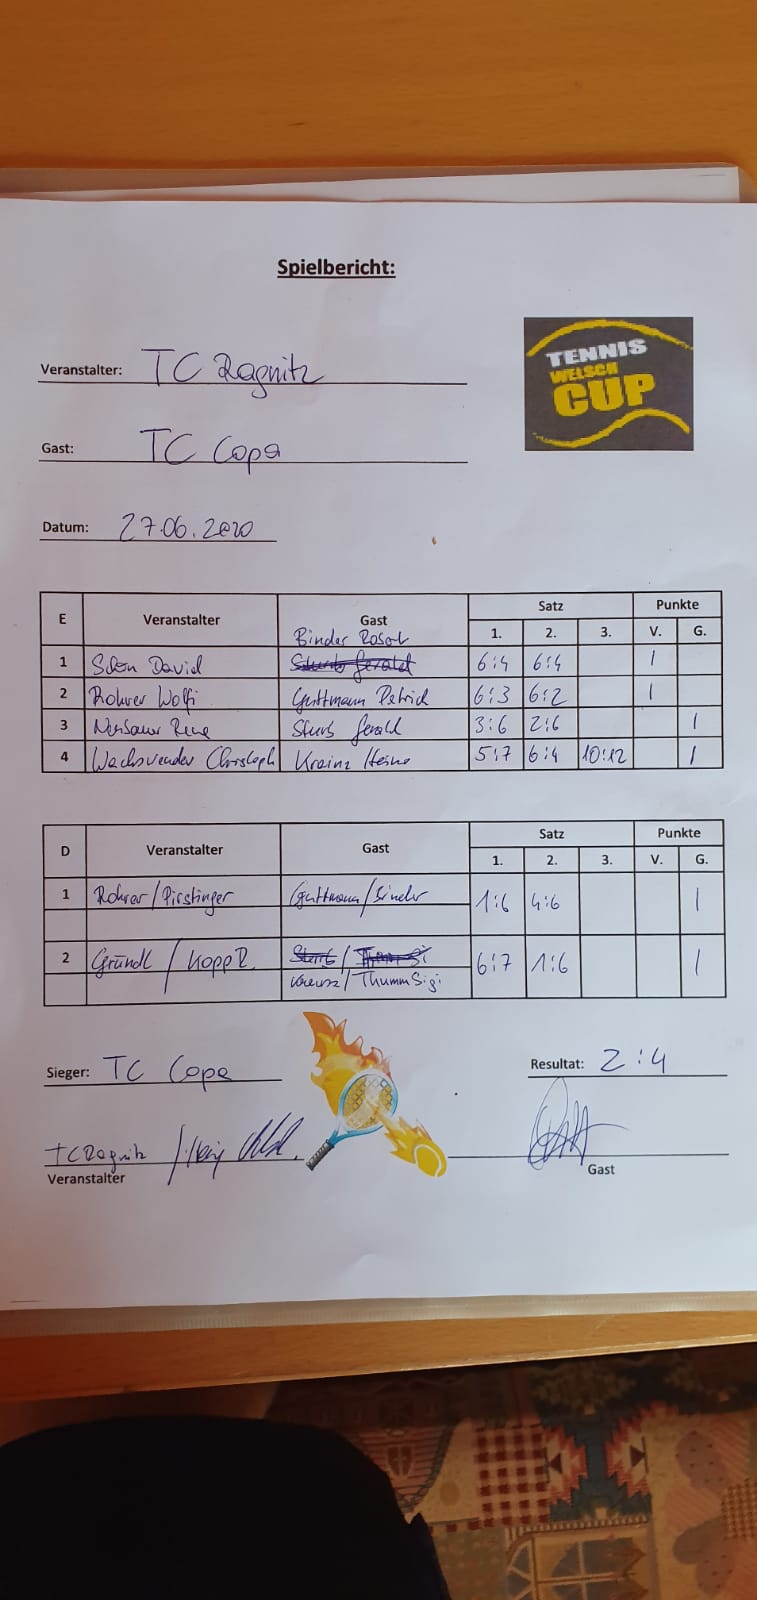 Spielbericht:
TENNIS
WELSCH
CUP
Veranstalter: TC Ragnitz
Gast: TC Copa
Datum: 27.06.2020
E Veranstalter Gast Satz Punkte
1. 2. 3. V. G.
Binder
1 David 6:4 6:4 1
2 Rohrer Wolfi Guttmann Patrick 6:3 6:2 1
3 Gerald 3:6 2:6 1
4 Christoph Krainz Heino 5:7 6:4 10:12 1
D Veranstalter Gast Satz Punkte
1. 2. 3. V. G.
1 Rohrer/Pirstinger Guttmann/Binder 1:6 4:6 1
2 Gründl / Kopp R. 6:7 1:6 1
Krainz/Thumm Sigi
Sieger: TC Copa Resultat: 2:4
TC Ragnitz
Veranstalter Gast